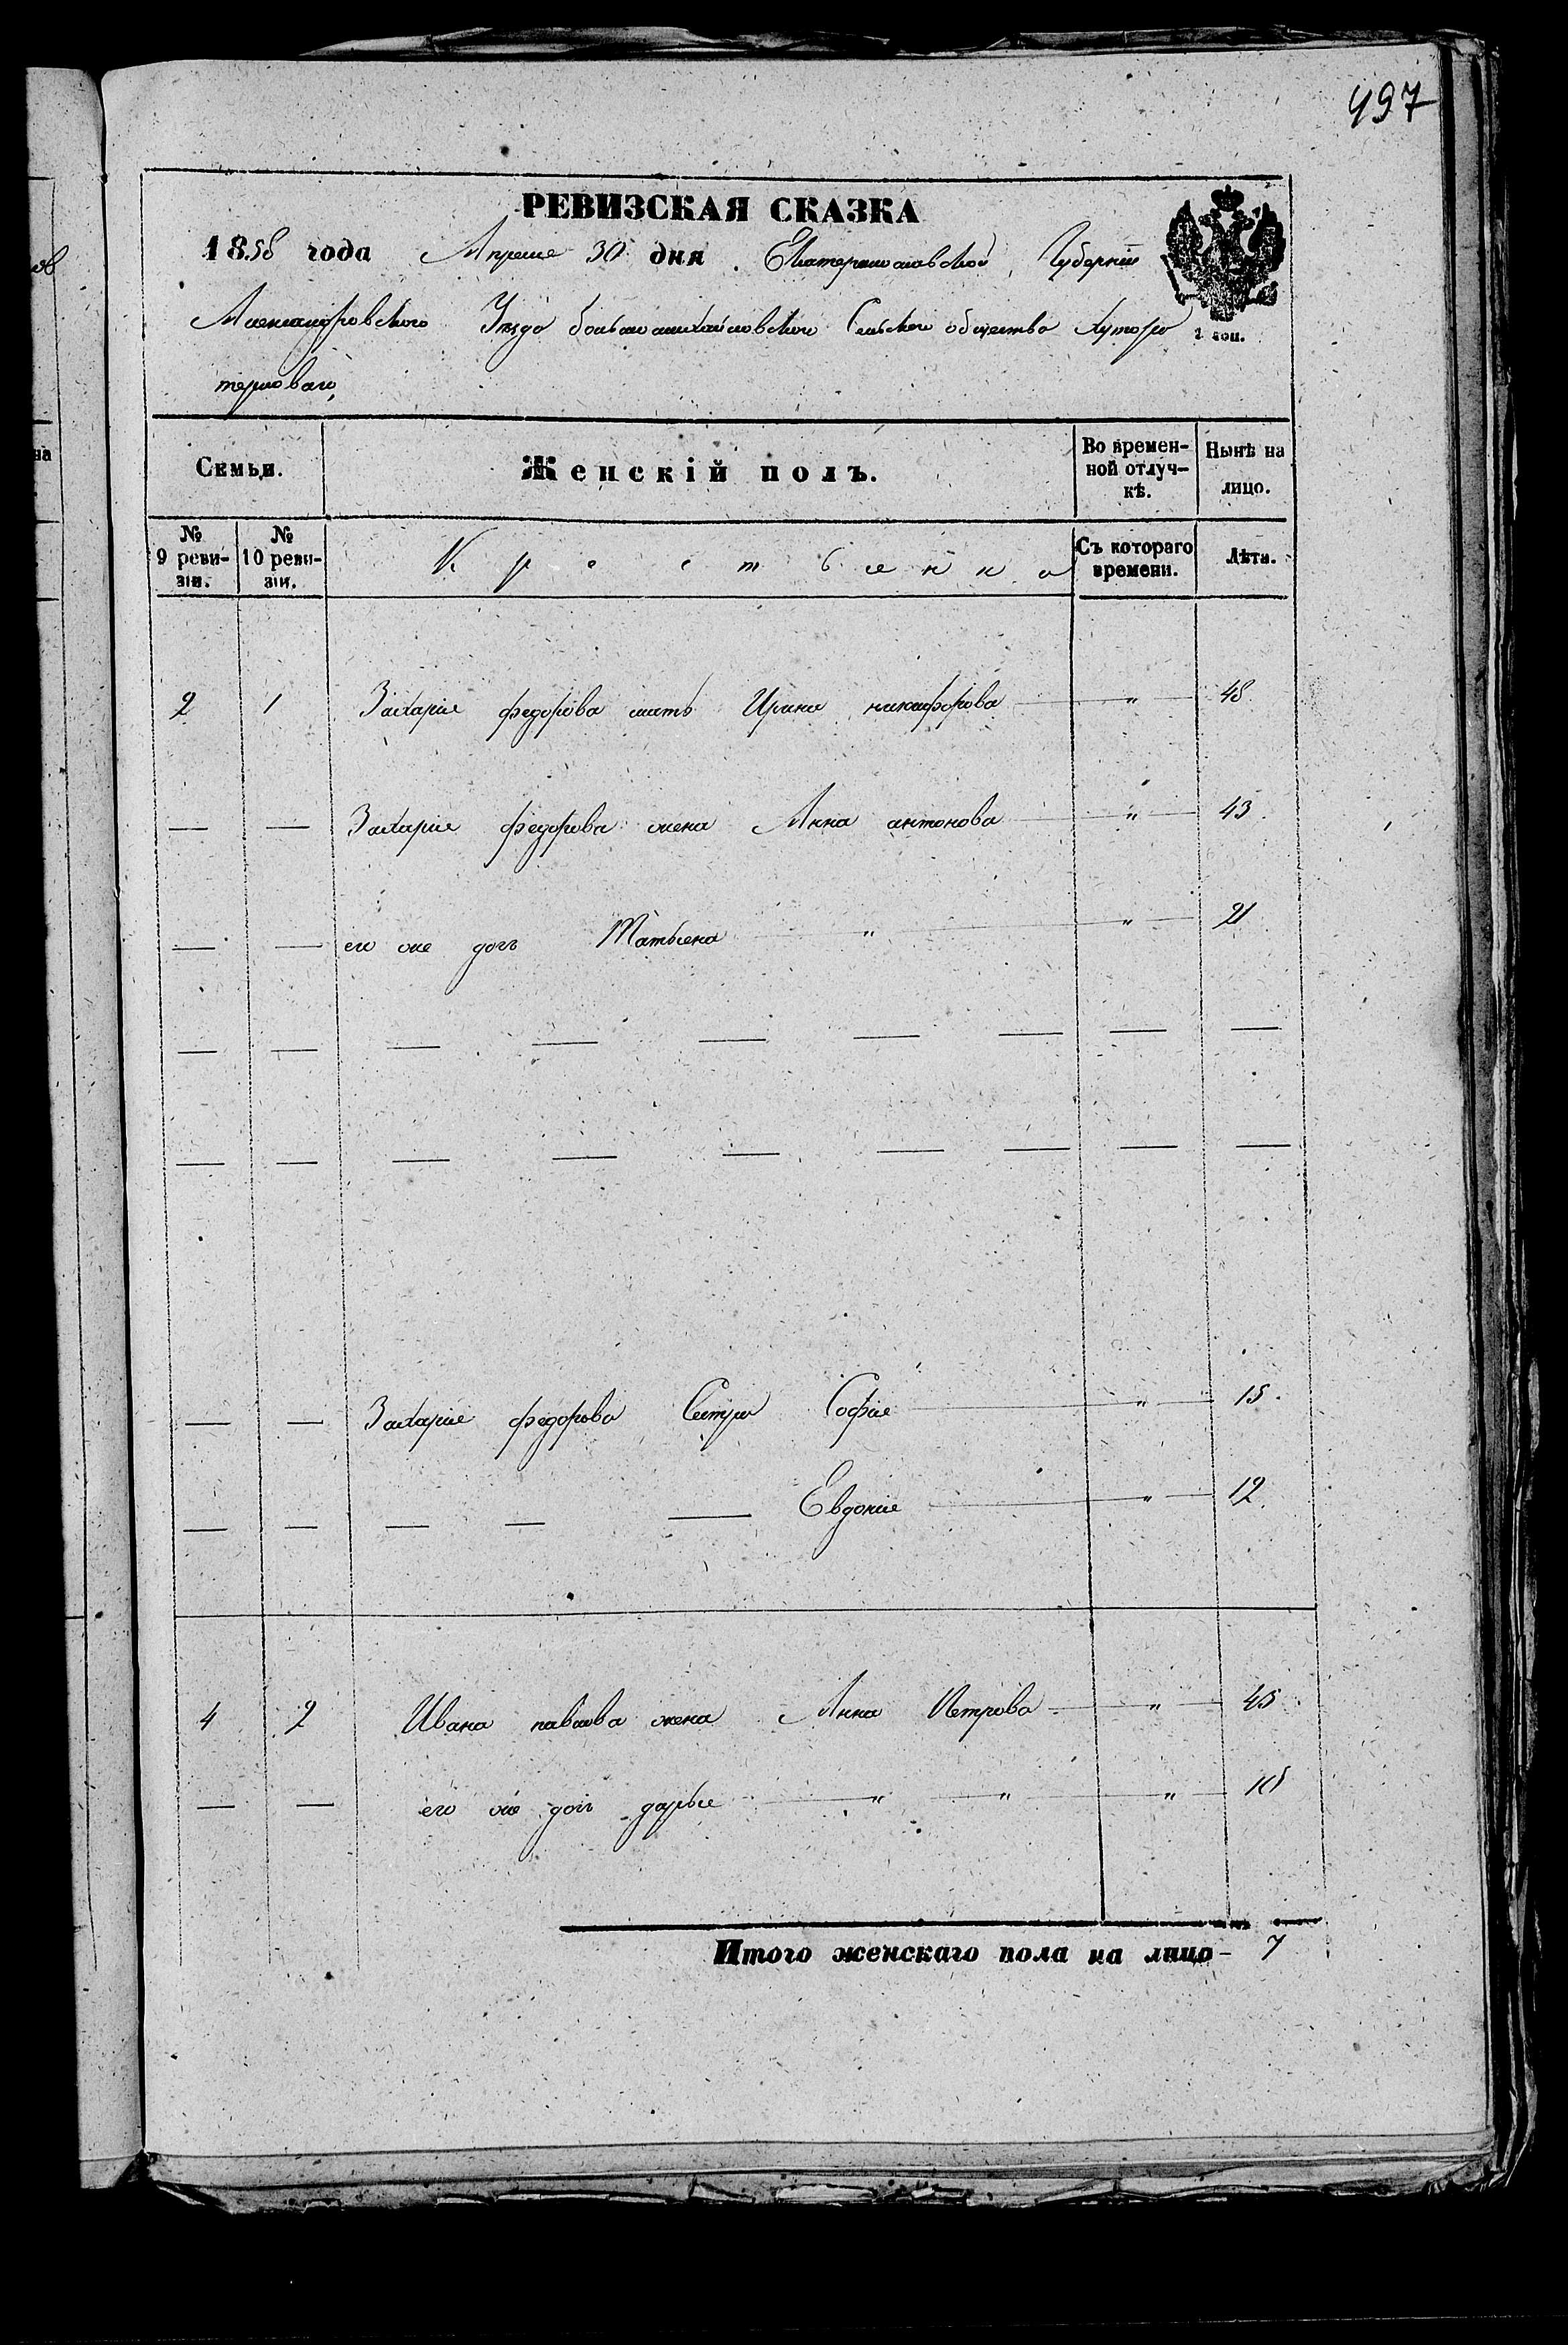 497
РЕВИЗСКАЯ СКАЗКА
1858 года Апреля 30 дня. Екатеринославской Губернiи
Александровского Уезда большемихайловского Сельского общества Хутора
терноваго,
2 коп.
Семьи. Женскiй полъ. Во времен-ной отлуч-кѣ. Нынѣ на лицо.
№ 9 реви-зiи. № 10 реви-зiи. Крестьянка Съ котораго времени. Лѣта.
2 1 Захарiя федорова мать Ирина никифорова " 48
— — Захарiя федорова жена Анна антонова " 43.
— — его же дочь Татьяна " " 21
— — — — — — — — —
— — — — — — — — —
— — Захарiя федорова Сестра Софiя " 15.
— — — — — Евдокiя " 12.
4 2 Ивана павлова жена Анна Петрова " 45
— — его же дочь дарья " " " 18
Итого женскаго пола на лицо - 7
ов
на